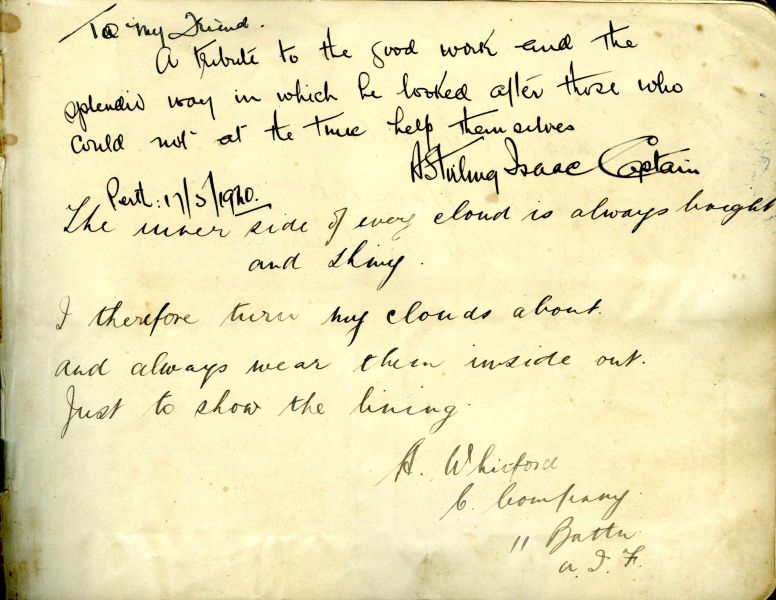 To my Friend.
A tribute to the good work and the
splendid way in which he looked after those who
could not at the time help themselves
A Stirling Isaac Captain
Perth: 17/5/1920.
The inner side of every cloud is always bright
and shiny.
I therefore turn my clouds about.
and always wear them inside out.
Just to show the lining.
A. Whitford
C. Company.
11 Battn
A. I. F.